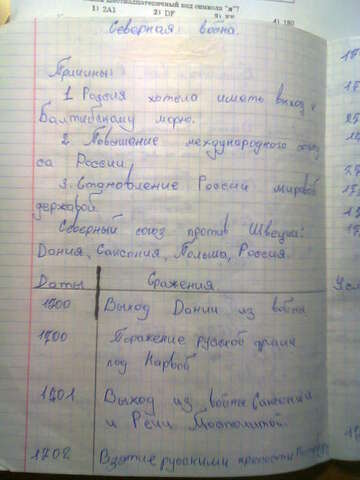 шестнадцатеричный код символа "я"?
1) 2A1
2) DF
4) 180
Северная война.
Причины:
1. Россия хотела иметь выход к
Балтийскому морю.
2. Повышение международного
са России,
3. Становление России мировой
державой.
Северный союз против Швеции:
Дания, Саксония, Польша, Россия.
Даты Сражения
1700 Выход Дании из войны
1700 Поражение русской армии
под Нарвой
1701 Выход из войны Саксонии
и Речи Посполитой.
1702 Взятие русскими крепости